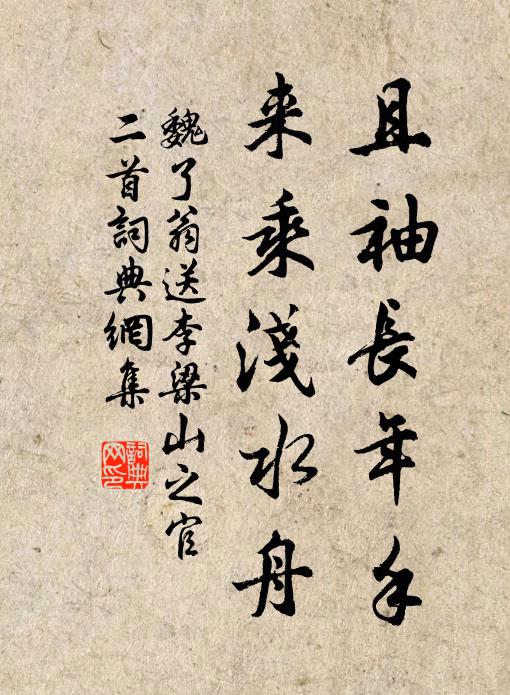 且袖長年手
来乘淺水舟
魏了翁送李梁山之官
二首詞典網集
詞典
网印